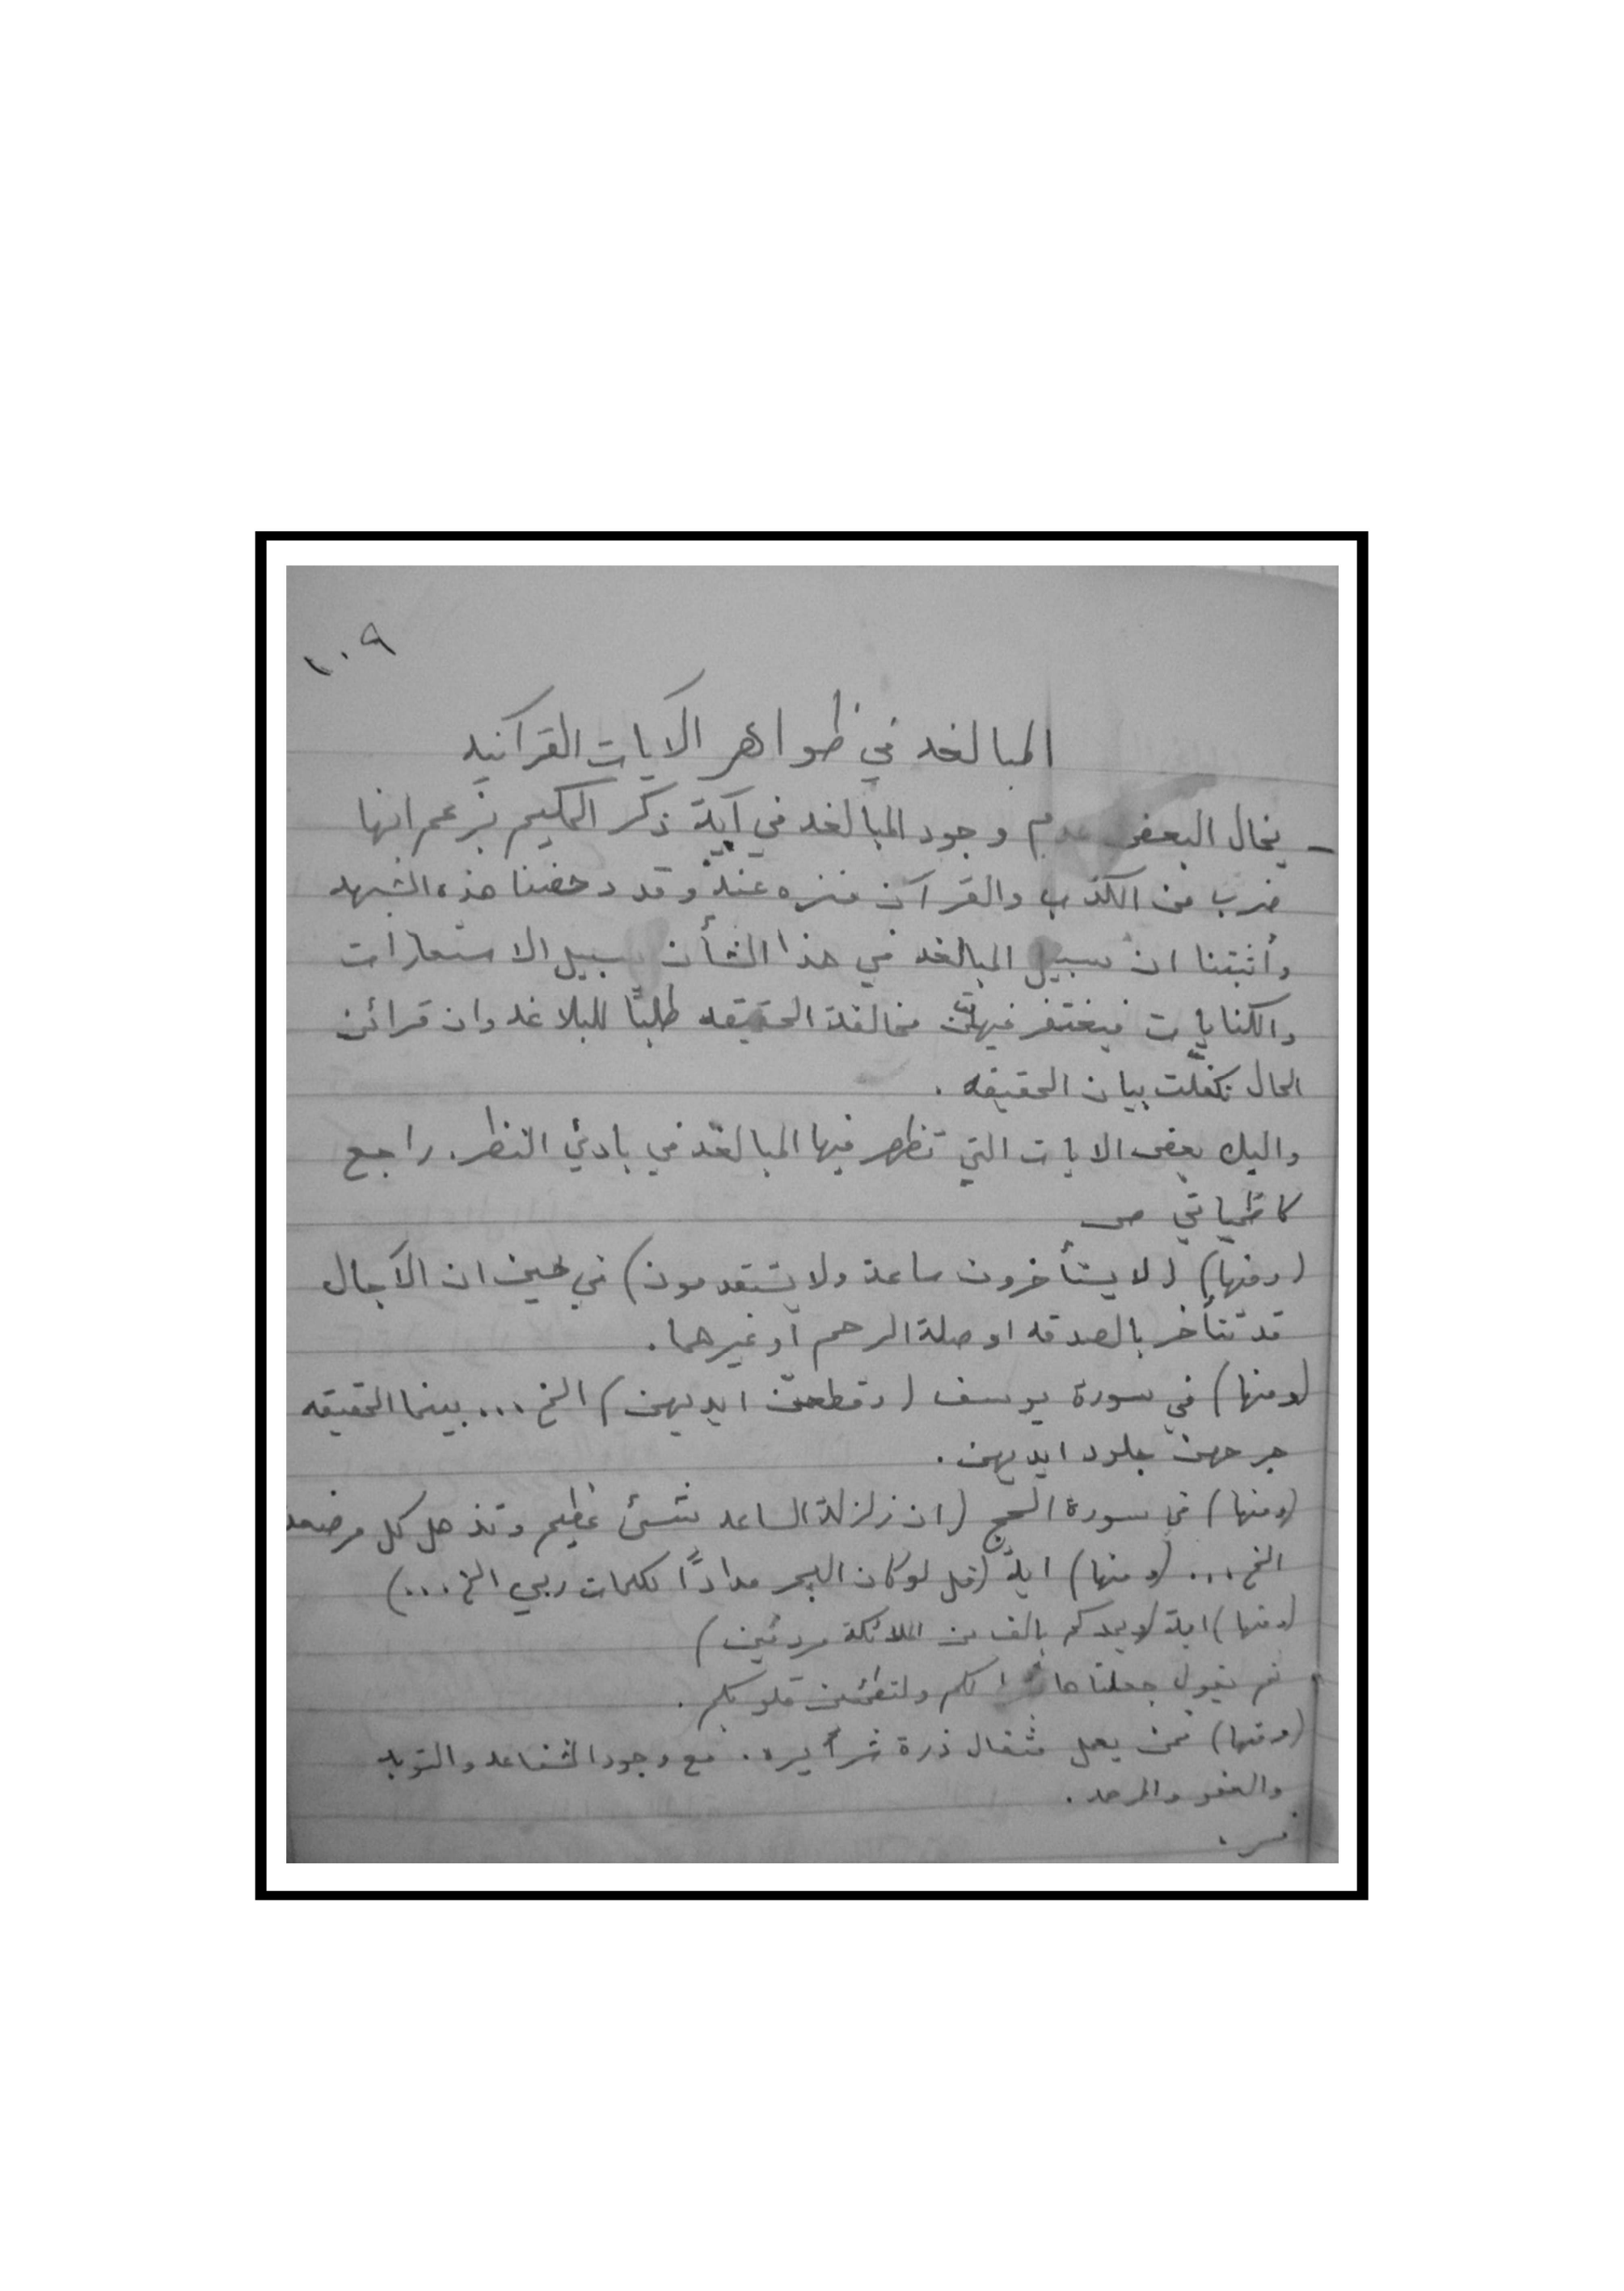 ١٠٩
المبالغه في ظواهر الآيات القرآنيه
- يخال البعض عدم وجود المبالغه في آية ذكر الحكيم بزعم انها
ضرب من الكذب والقرآن منزه عنه وقد دحضنا هذه الشبهه
وأثبتنا ان سبيل المبالغه في هذا الشأن سبيل الاستعارات
والكنايات فيغتفر فيهن مخالفة الحقيقه طلبًا للبلاغه وان قرائن
الحال تكفلت ببيان الحقيقه .
واليك بعض الايات التي تظهر فيها المبالغه في بادئ النظر. راجع
كاظمياتي ص
(ومنها) (لا يستأخرون ساعة ولا يستقدمون) في حين ان الآجال
قد تتأخر بالصدقه او صلة الرحم أو غيرهما.
(ومنها) في سورة يوسف (وقطعن ايديهن) الخ ... بينما الحقيقه
جرحهن جلود ايديهن .
(ومنها) في سورة الحج (ان زلزلة الساعه شئ عظيم وتذهل كل مرضعه
الخ ... (ومنها) اية (قل لو كان البحر مدادًا لكلمات ربي الخ ...)
(ومنها) اية (ويمدكم بالف من الملائكة مردفين)
ثم يقول جعلناها لكم ولتطمئن قلوبكم .
(ومنها) فمن يعمل مثقال ذرة شرًا يره . مع وجود الشفاعه والتوبه
والعفو والرحمه .